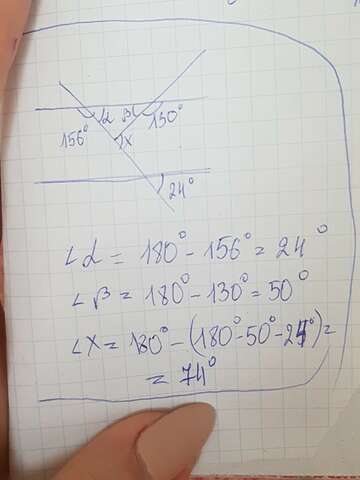 α β 130°
156° x
24°
∠α = 180° - 156° = 24°
∠β = 180° - 130° = 50°
∠X = 180° - (180° - 50° - 24°) =
= 74°